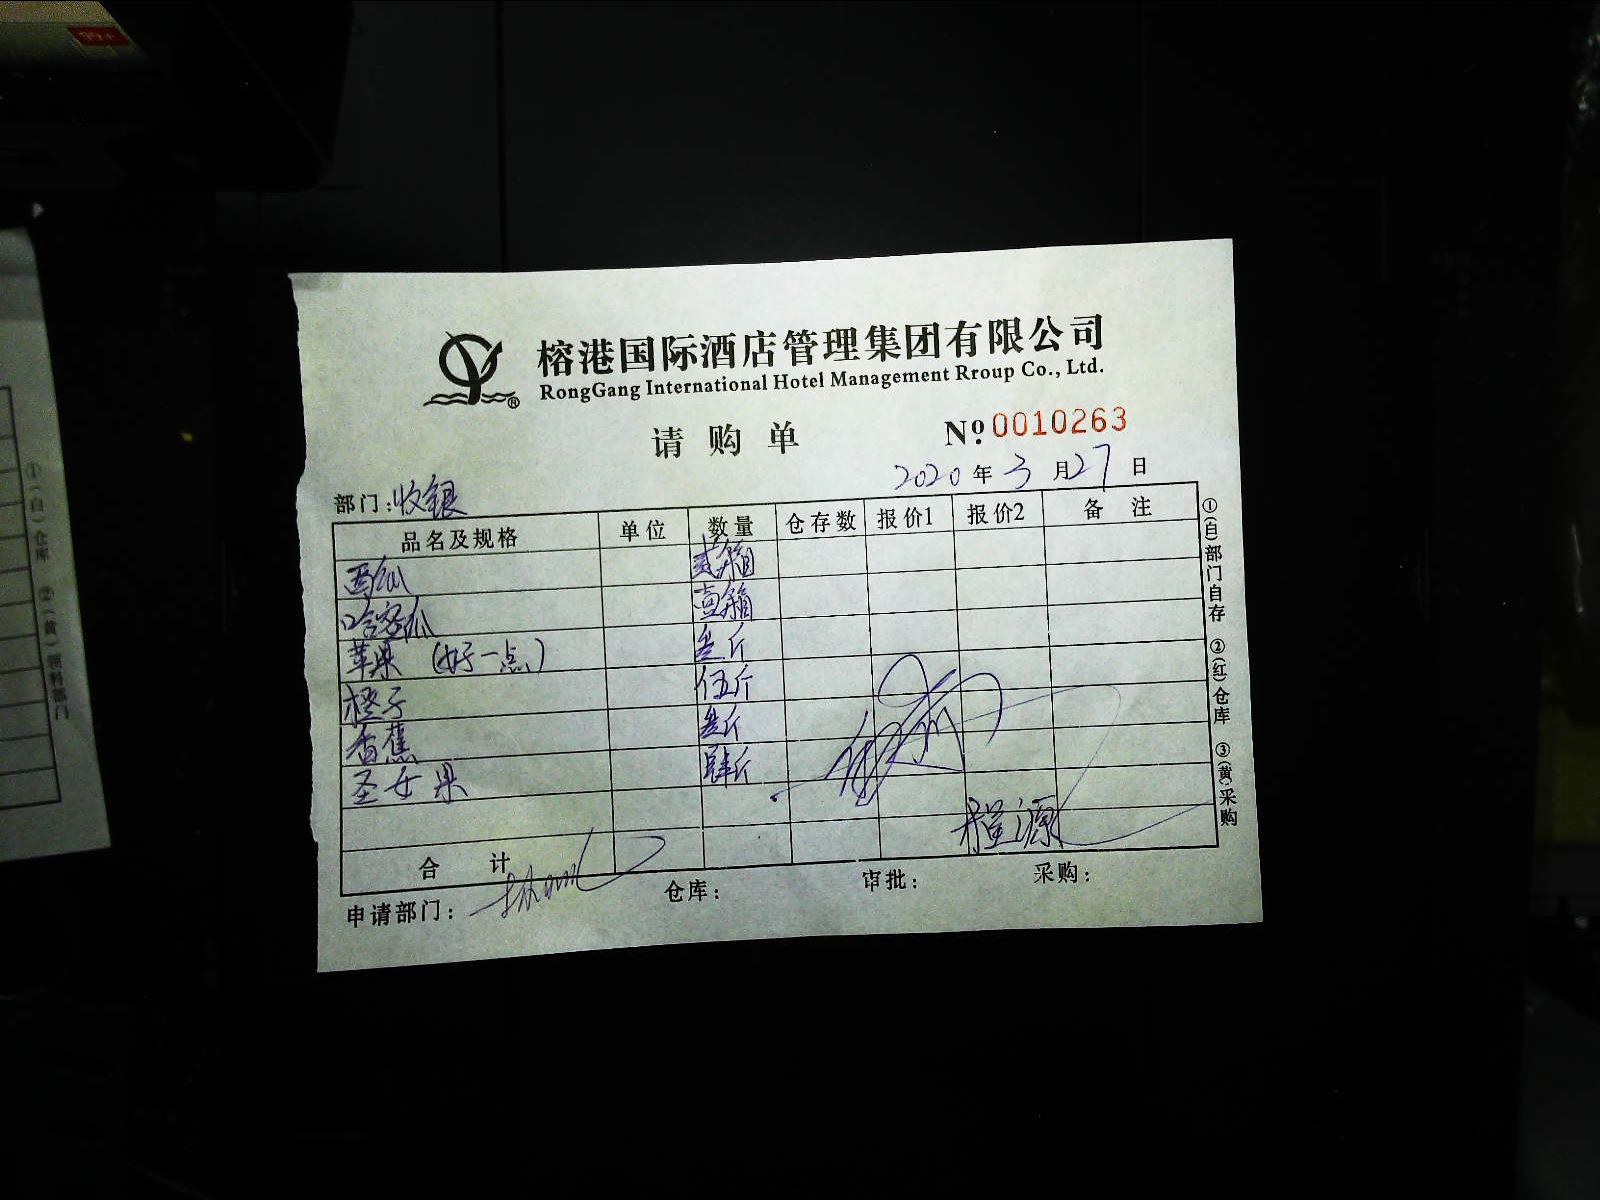 榕港国际酒店管理集团有限公司
RongGang International Hotel Management Rroup Co., Ltd.
请购单 Nº 0010263
2020 年 3 月 27 日
部门:收银
品名及规格 单位 数量 仓存数 报价1 报价2 备注
西瓜 贰箱
哈密瓜 壹箱
苹果 (好一点) 叁斤
橙子 伍斤
香蕉 叁斤
圣女果 肆斤
合计
申请部门: 仓库: 审批: 采购:
①(自)部门自存 ②(红)仓库 ③(黄)采购
①(自)仓库 ②(黄)领料部门